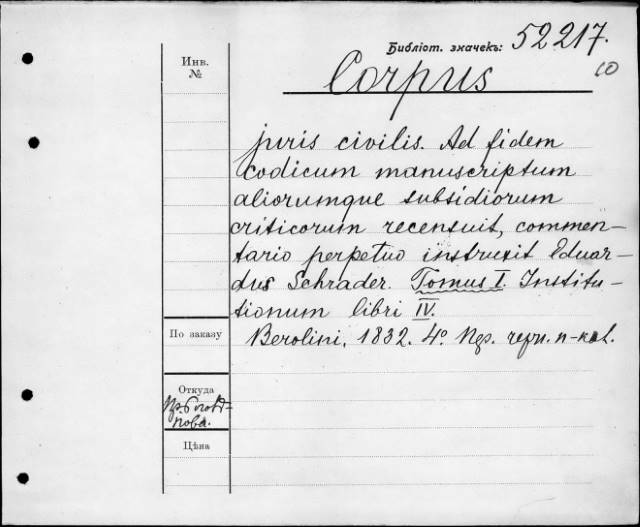 Библіот. значекъ: 52217.
Инв.
№
Corpus
juris civilis. Ad fidem
codicum manuscriptum
aliorumque subsidiorum
criticorum recensuit, commen-
tario perpetuo instruxit Eduar-
dus Schrader. Tomus I. Institu-
tionum libri IV.
По заказу
Berolini, 1832. 4º.
Откуда
Цѣна